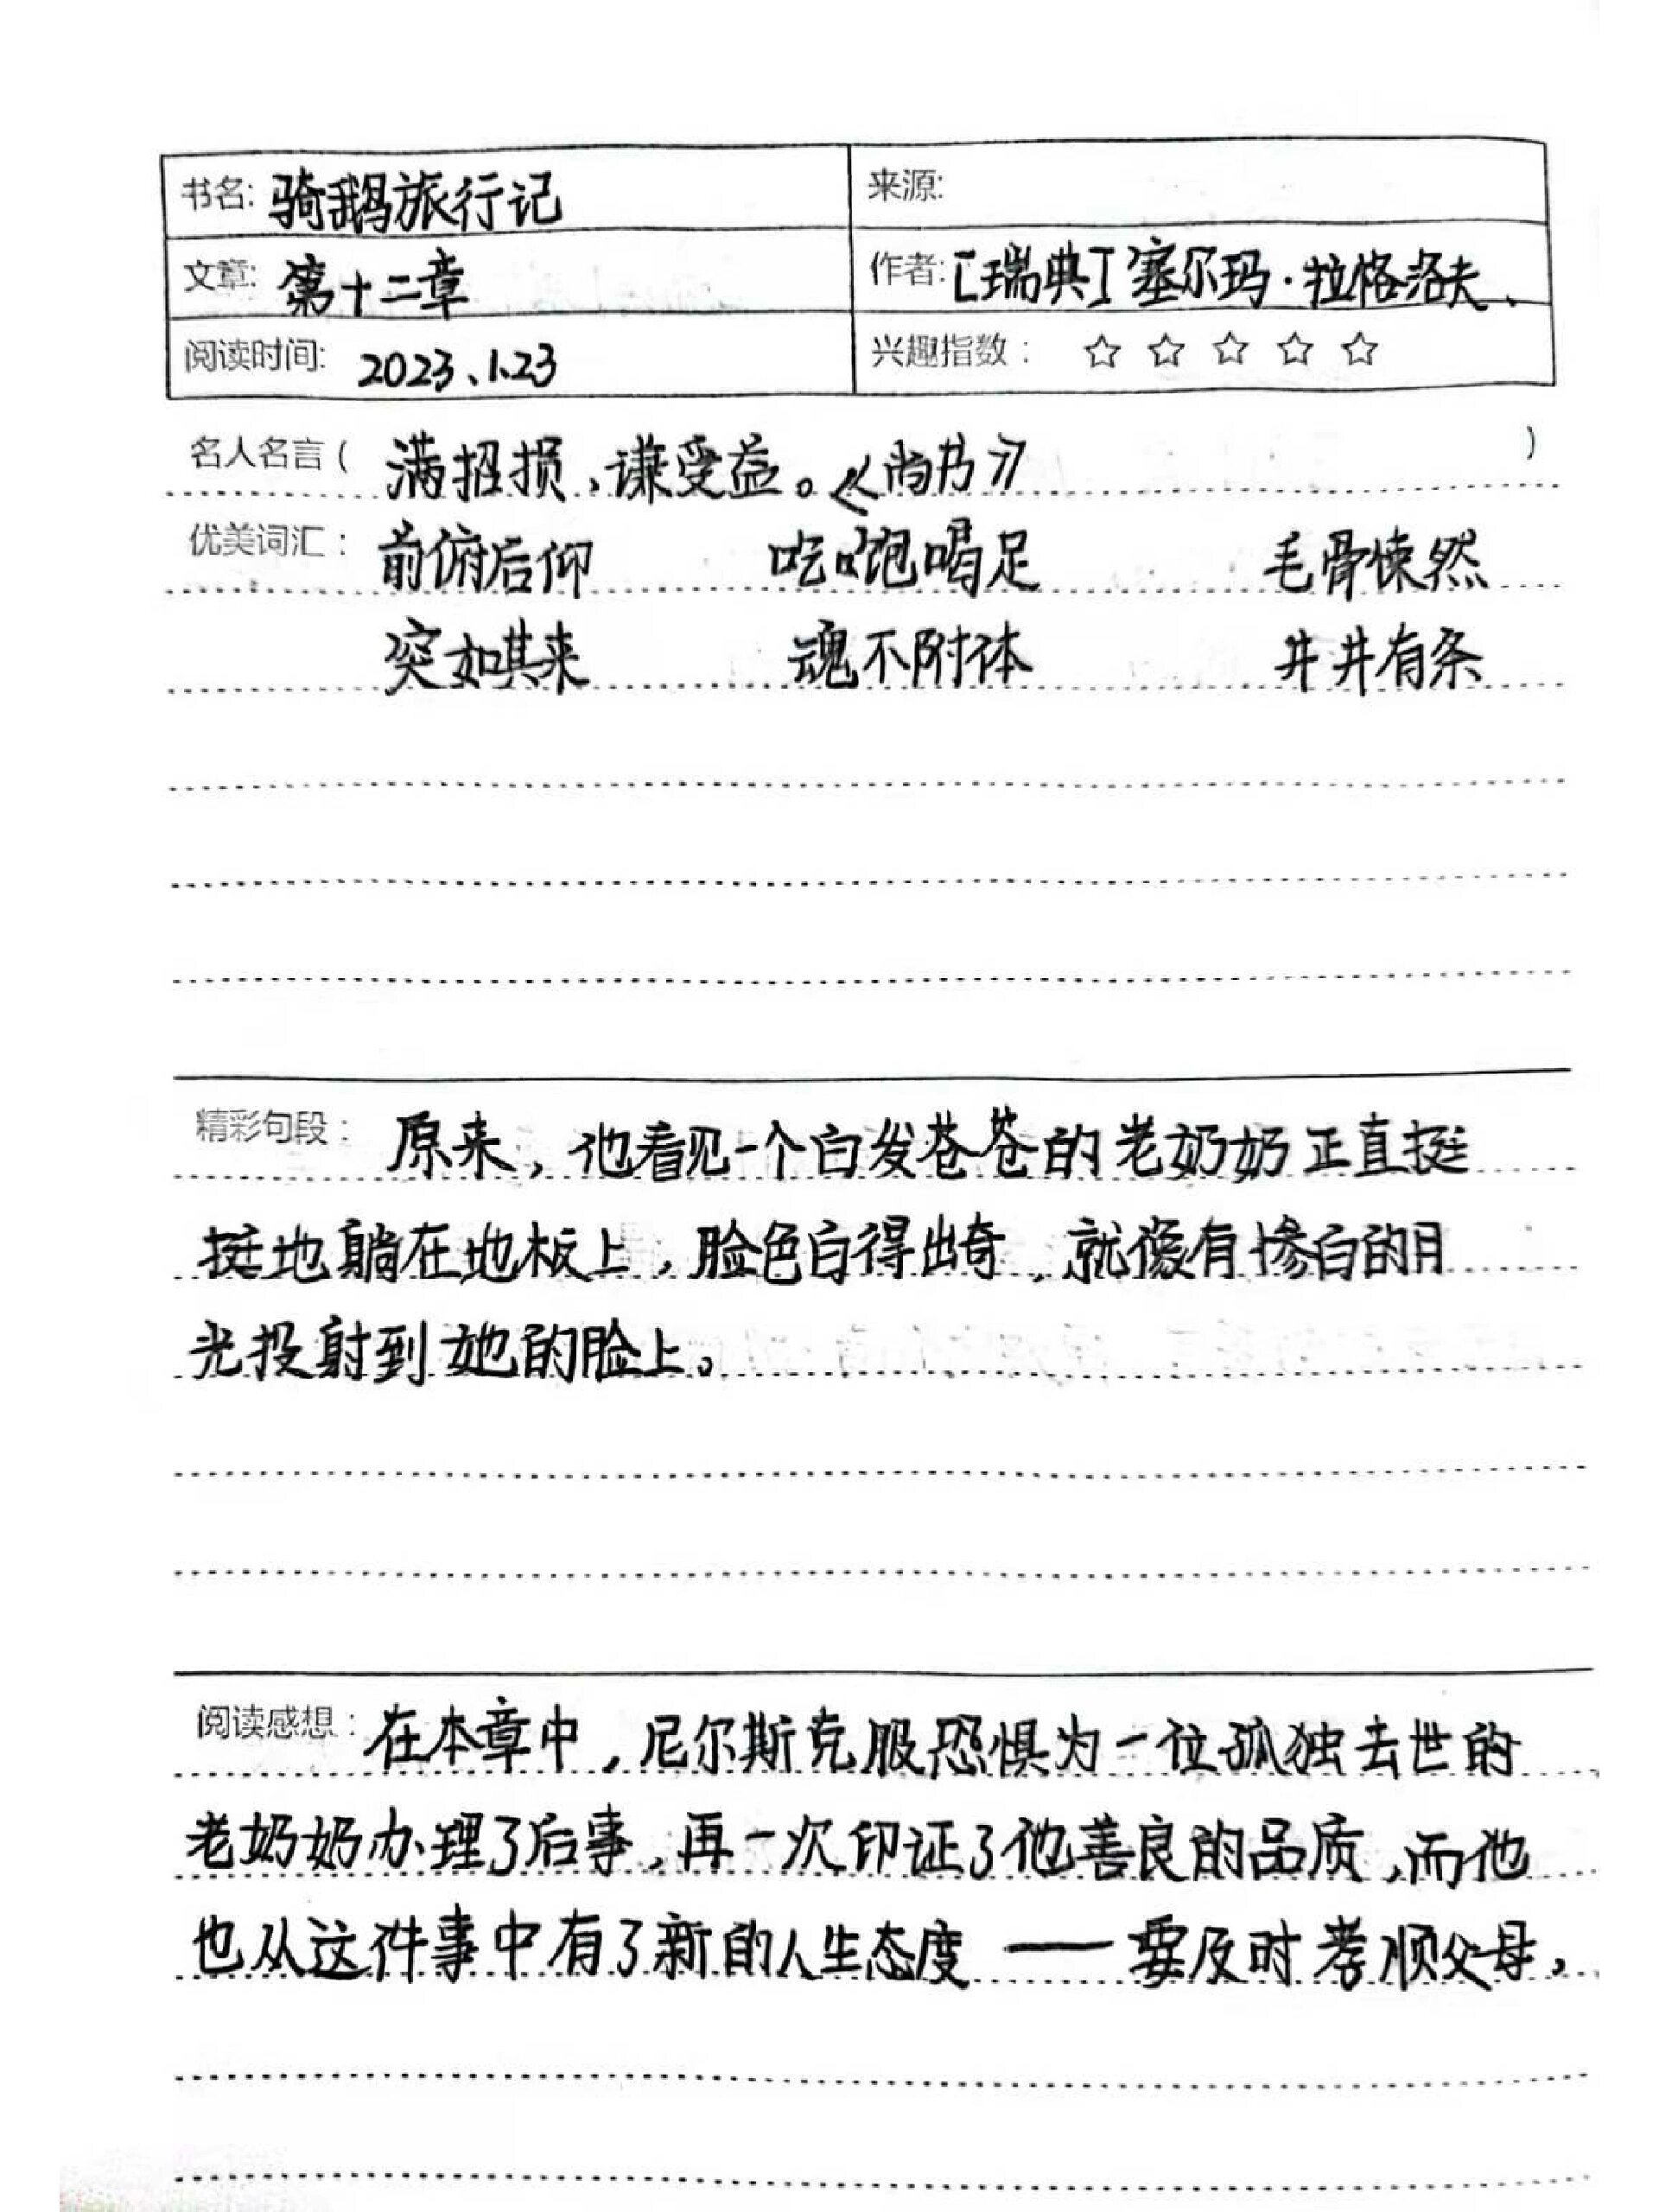 书名: 骑鹅旅行记 来源:
文章: 第十二章 作者: [瑞典]塞尔玛·拉格洛夫、
阅读时间: 2023、1.23 兴趣指数： ☆ ☆ ☆ ☆ ☆
名人名言( 满招损，谦受益。《尚书》 )
优美词汇： 前俯后仰 吃饱喝足 毛骨悚然
突如其来 魂不附体 井井有条
精彩句段： 原来，他看见一个白发苍苍的老奶奶正直挺
挺地躺在地板上，脸色白得出奇，就像有惨白的月
光投射到她的脸上。
阅读感想： 在本章中，尼尔斯克服恐惧为一位孤独去世的
老奶奶办理了后事，再一次印证了他善良的品质，而他
也从这件事中有了新的人生态度——要及时孝顺父母，